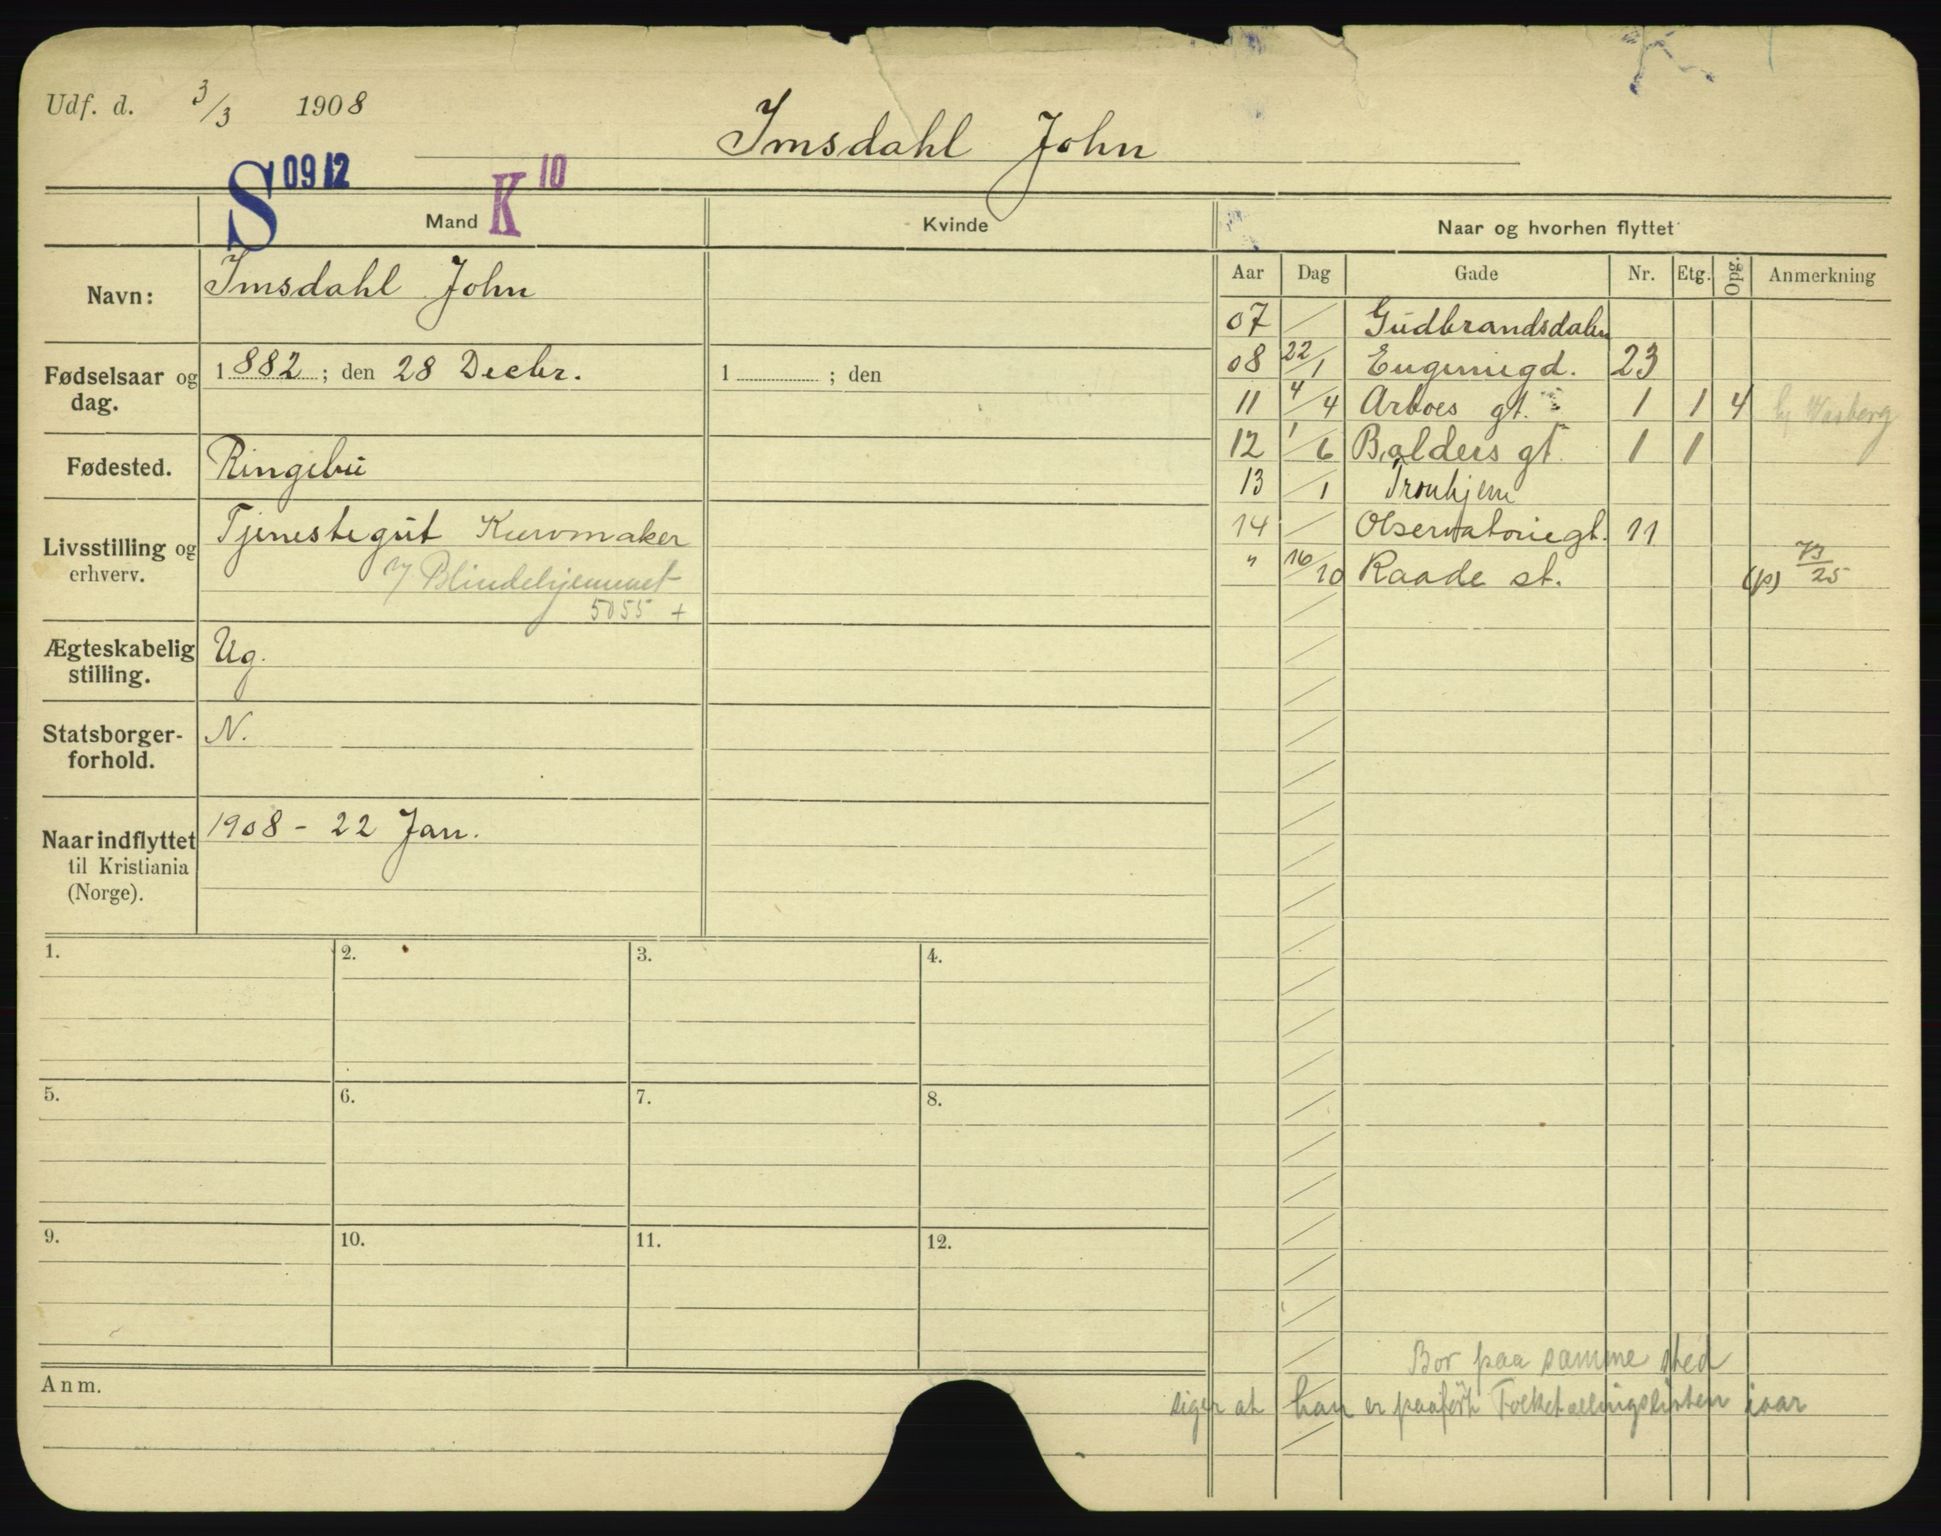 Udf. d. 3/3 1908
Imsdahl John
S 09 12 K 10
Mand
Kvinde
Naar og hvorhen flyttet
Navn:
Imsdahl John
Fødselsaar og dag.
1882; den 28 Decbr.
1 ; den
Fødested.
Ringebu
Livsstilling og erhverv.
Tjenestegut Kurvmaker
v/ Blindehjemmet
5055 +
Ægteskabelig stilling.
Ug.
Statsborger-
forhold.
N.
Naar indflyttet
til Kristiania
(Norge).
1908 - 22 Jan.
Aar Dag Gade Nr. Etg. Opg. Anmerkning
07 / Gudbrandsdalen
08 22/1 Eugeniegd. 23
11 4/4 Arboes gt. 1 1 4
12 1/6 Balders gt. 1 1
13 /1 Tronhjem
14 / Observatoriegt. 11
" 16/10 Raade st. (p) 73/25
1. 2. 3. 4.
5. 6. 7. 8.
9. 10. 11. 12.
Anm.
Bor paa samme sted
siger at han er paaført Folketællingslisten iaar